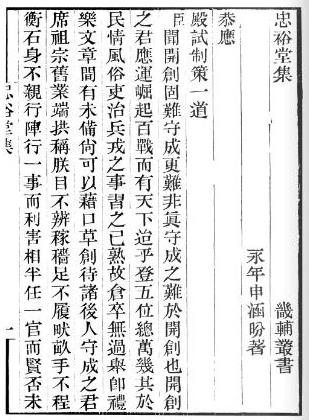 忠裕堂集
畿輔叢書
永年申涵盼著
恭應
殿試制策一道
臣聞開創固難守成更難非眞守成之難於開創也開創
之君應運崛起百戰而有天下迨乎登五位總萬幾其於
民情風俗吏治兵戎之事習之已熟故倉卒無過舉卽禮
樂文章間有未備尙可以藉口草創待諸後人守成之君
席祖宗舊業端拱稱朕目不辨稼穡足不履畎畝手不程
衡石身不親行陣行一事而利害相半任一官而賢否未
忠裕堂集
一